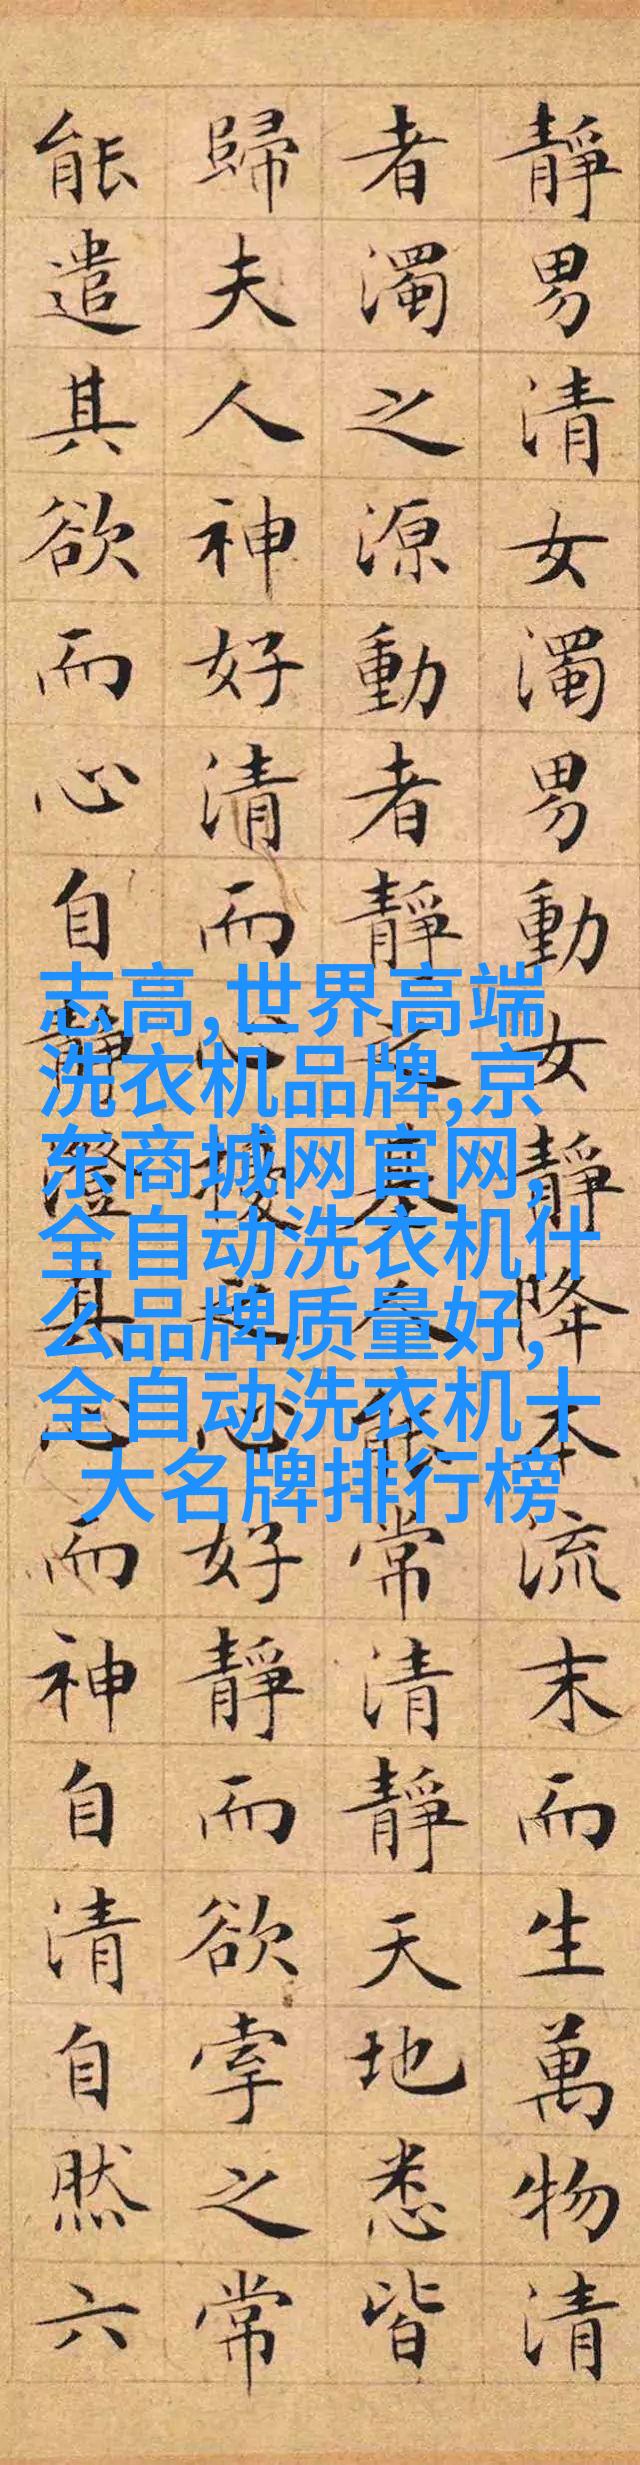 靜男清女濁男動女靜降本流末而生萬物清
者濁之源動者靜之基人能常清靜天地悉皆
歸夫人神好清而心擾之心好靜而欲牽之常
能遣其欲而心自靜澄其心而神自清自然六
志高,世界高端
洗衣机品牌,京
东商城网官网,
全自动洗衣机什
么品牌质量好,
全自动洗衣机十
大名牌排行榜